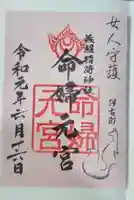 女人守護
稲荷神社
命婦元宮
命婦
元宮
令和元年六月廿六日